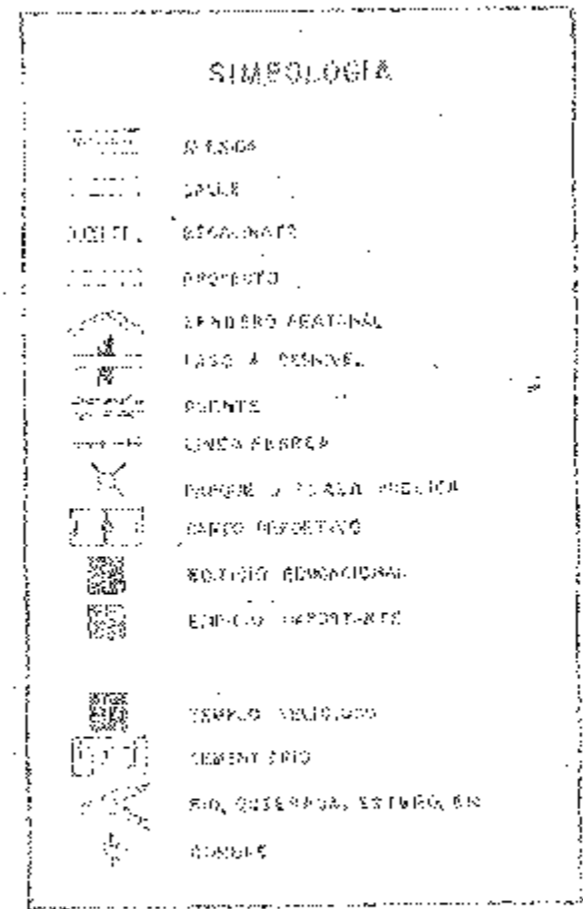 SIMBOLOGIA
CALLE
ESCALINATA
PROYECTO
SENDERO PEATONAL
PASO A DESNIVEL
PUENTE
LINEA FERREA
PARQUE O PLAZA PUBLICA
CAMPO DEPORTIVO
EDIFICIO EDUCACIONAL
EDIFICIO IMPORTANTE
TEMPLO RELIGIOSO
CEMENTERIO
RIO, QUEBRADA, ESTERO,